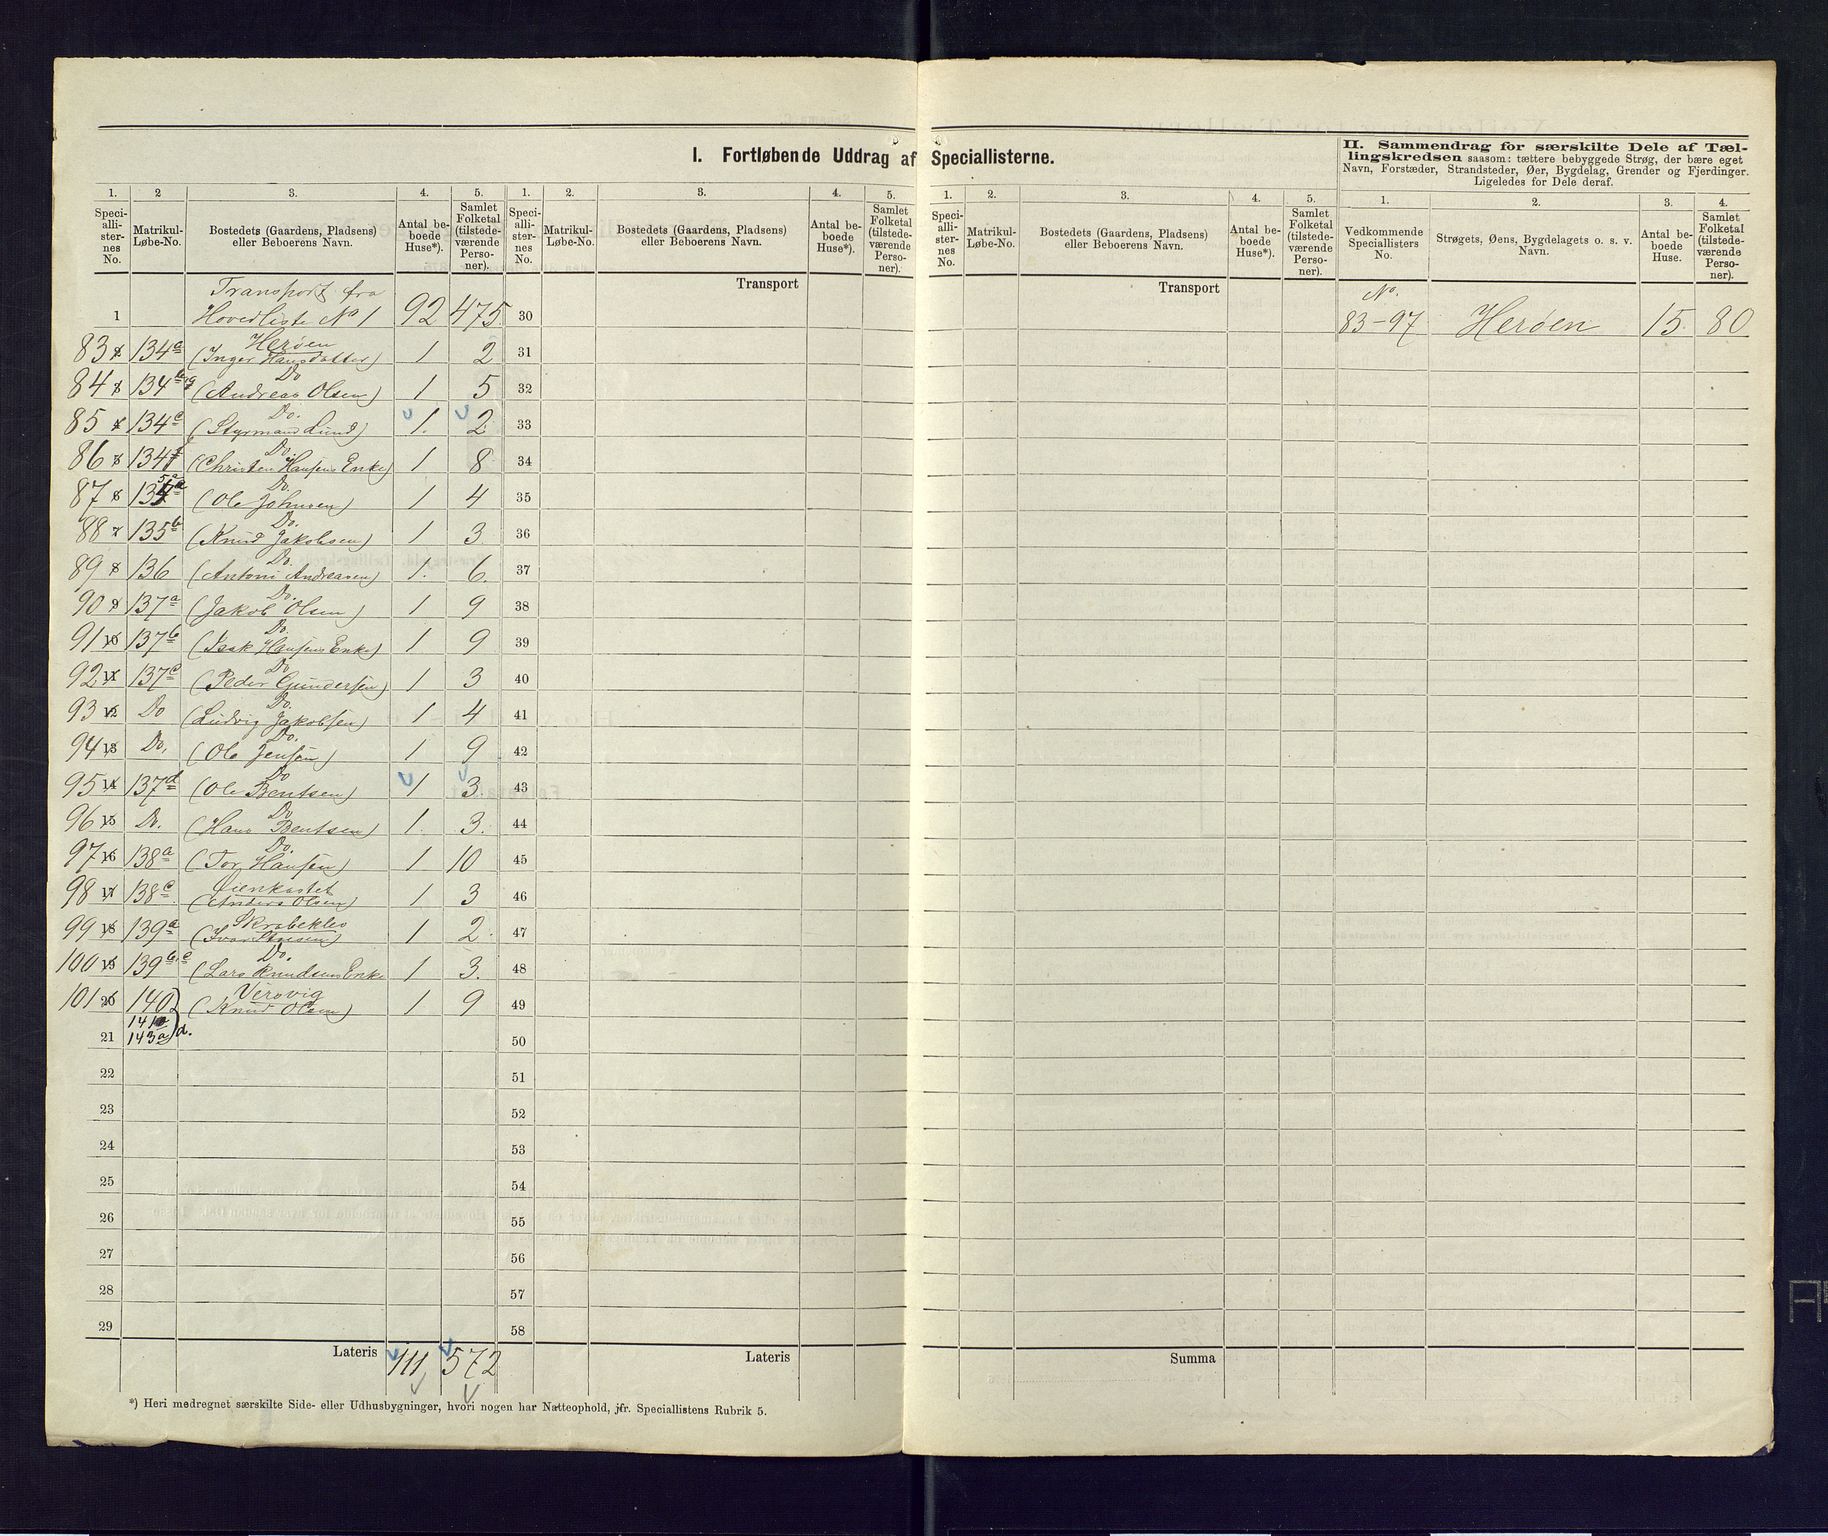 I. Fortløbende Uddrag af Speciallisterne.
II. Sammendrag for særskilte Dele af Tæl-
lingskredsen saasom: tættere bebyggede Strøg, der bære eget
Navn, Forstæder, Strandsteder, Øer, Bygdelag, Grender og Fjerdinger.
Ligeledes for Dele deraf.
1. 2 3. 4. 5. 1. 2. 3. 4. 5. 1. 2. 3. 4. 5. 1. 2. 3. 4.
Speciallisternes No. Matrikul-Løbe-No. Bostedets (Gaardens, Pladsens) eller Beboerens Navn. Antal beboede Huse*). Samlet Folketal (tilstedeværende Personer).
Speciallisternes No. Matrikul-Løbe-No. Bostedets (Gaardens, Pladsens) eller Beboerens Navn. Antal beboede Huse*). Samlet Folketal (tilstedeværende Personer).
Speciallisternes No. Matrikul-Løbe-No. Bostedets (Gaardens, Pladsens) eller Beboerens Navn. Antal beboede Huse*). Samlet Folketal (tilstedeværende Personer).
Vedkommende Speciallisters No. Strøgets, Øens, Bygdelagets o. s. v. Navn. Antal beboede Huse. Samlet Folketal (tilstedeværende Personer).
Transport fra
1 Hovedliste No 1 92 475
Herøen
83 134a (Inger Hansdatter) 1 2
Do
84 134 (Andreas Olsen) 1 5
Do.
85 134c (Styrmand Lund) 1. 2
Do.
86 134f (Christen Hansens Enke) 1 8
Do.
87 135a (Ole Johnsen) 1 4
Do.
88 135b (Knud Jakobsen) 1 3
Do.
89 136 (Antoni Andreasen) 1. 6.
Do.
90 137a (Jakob Olsen) 1 9
Do.
91 137b (Isak Hansens Enke) 1 9
Do
92 137c (Peder Gundersen) 1 3
Do.
93 Do (Ludvig Jakobsen) 1 4
Do.
94 Do. (Ole Jensen) 1 9
Do
95 137d (Ole Bentsen) 1 3.
Do
96 Do. (Hans Bentsen) 1. 3.
Do.
97 138a (Tor Hansen) 1 10
Øienkastet
98 138c (Anders Olsen) 1 3
Skrabeklev
99 139a (Ivar) 1 2.
Do.
100 139b,c (Lars Knudsens Enke 1 3.
Virovig
101 140 (Knud Olsen) 1 9
141
21 143a d.
22
23
24
25
26
27
28
29
Lateris 111 572
Transport
30
31
32
33
34
35
36
37
38
39
40
41
42
43
44
45
46
47
48
49
50
51
52
53
54
55
56
57
58
Lateris
*) Heri medregnet særskilte Side- eller Udhusbygninger, hvori nogen har Natteophold, jfr. Speciallistens Rubrik 5.
Transport
Summa
No.
83-97 Herøen 15. 80